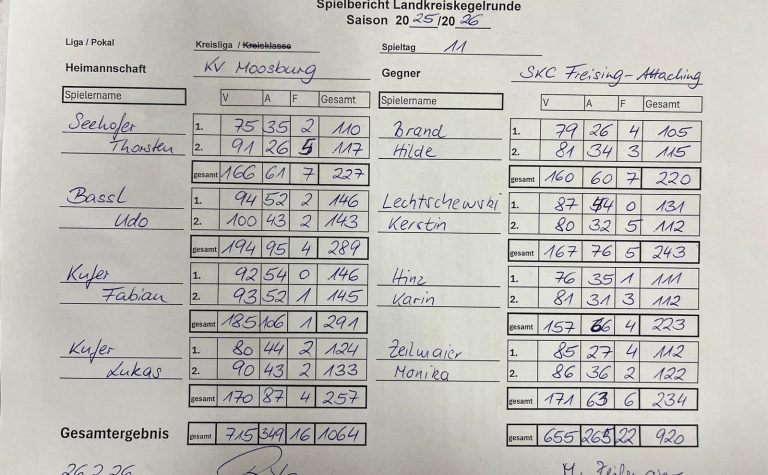 Spielbericht Landkreiskegelrunde
Saison 2025/2026
Liga / Pokal Kreisliga / Kreisklasse Spieltag 11
Heimannschaft KV Moosburg Gegner SKC Freising-Attaching
Spielername V A F Gesamt Spielername V A F Gesamt
Seehofer 1. 75 35 2 110 Brand 1. 79 26 4 105
Thorsten 2. 91 26 5 117 Hilde 2. 81 34 3 115
gesamt 166 61 7 227 gesamt 160 60 7 220
Bassl 1. 94 52 2 146 Lechtschewski 1. 87 44 0 131
Udo 2. 100 43 2 143 Kerstin 2. 80 32 5 112
gesamt 194 95 4 289 gesamt 167 76 5 243
Kufer 1. 92 54 0 146 Hinz 1. 76 35 1 111
Fabian 2. 93 52 1 145 Karin 2. 81 31 3 112
gesamt 185 106 1 291 gesamt 157 66 4 223
Kufer 1. 80 44 2 124 Zeilmaier 1. 85 27 4 112
Lukas 2. 90 43 2 133 Monika 2. 86 36 2 122
gesamt 170 87 4 257 gesamt 171 63 6 234
Gesamtergebnis gesamt 715 349 16 1064 gesamt 655 265 22 920
26.2.26